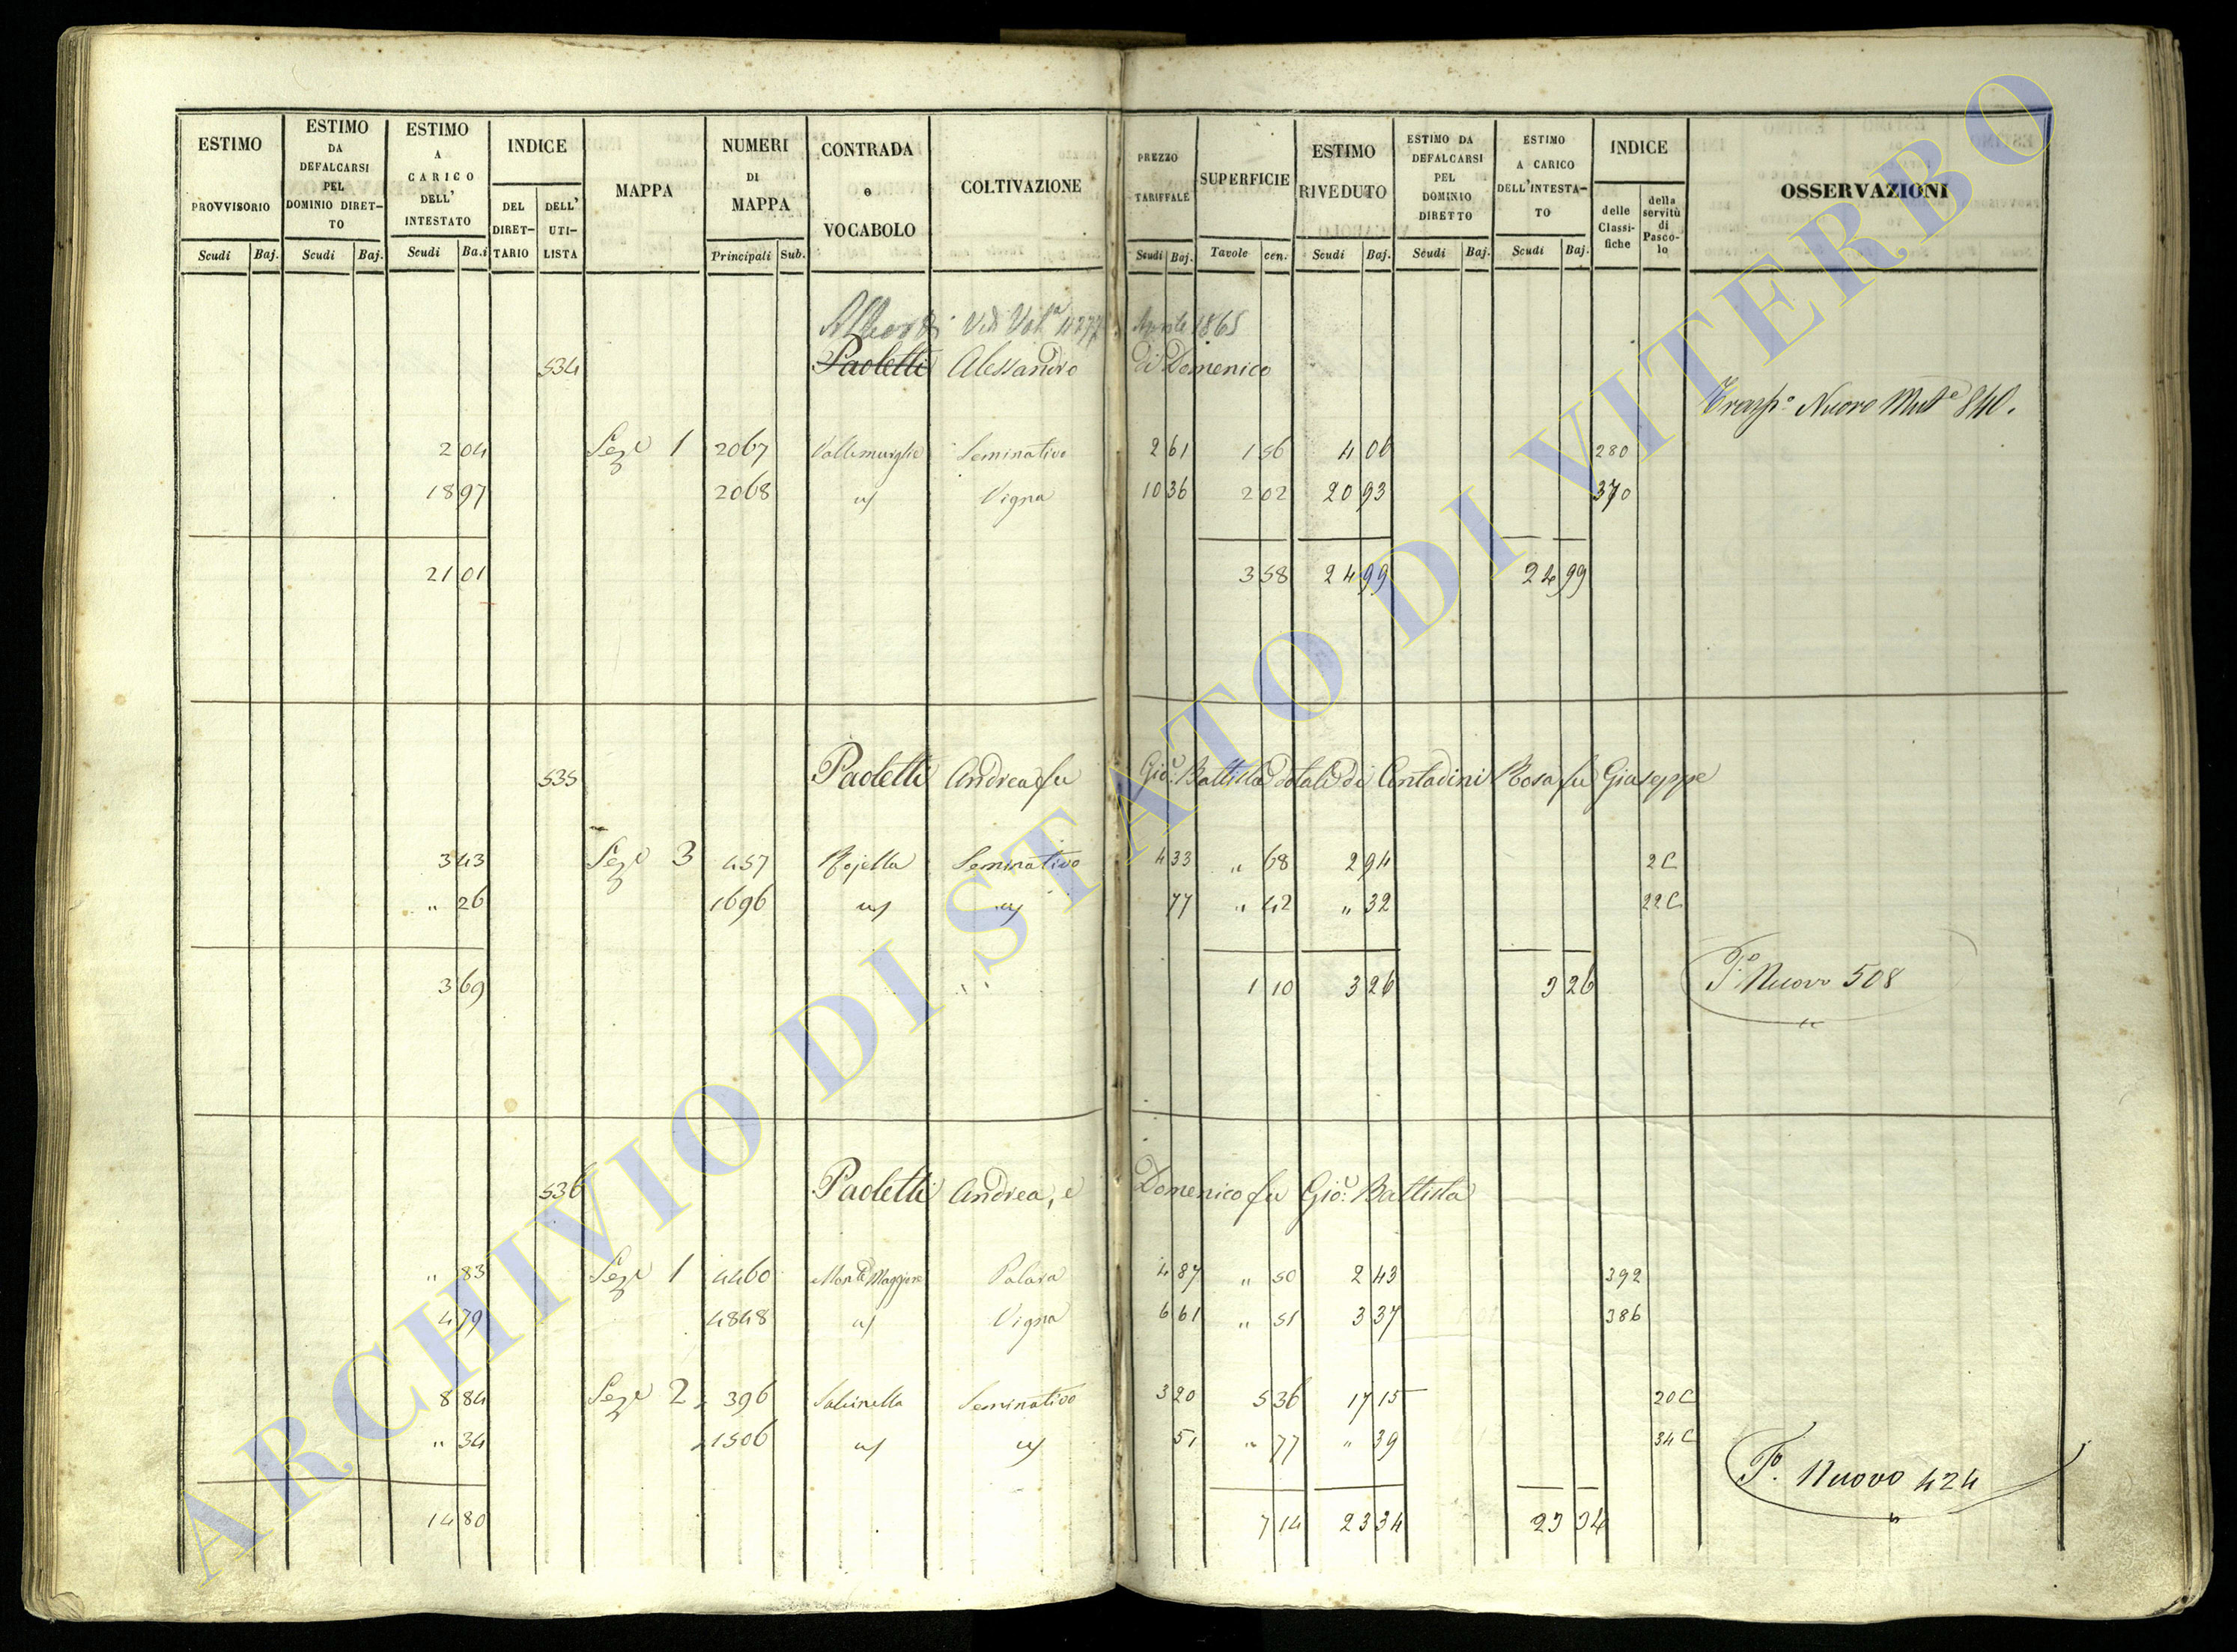 ESTIMO PROVVISORIO | ESTIMO DA DEFALCARSI PEL DOMINIO DIRETTO | ESTIMO A CARICO DELL' INTESTATO | INDICE | MAPPA | NUMERI DI MAPPA | CONTRADA e VOCABOLO | COLTIVAZIONE | PREZZO TARIFFALE | SUPERFICIE | ESTIMO RIVEDUTO | ESTIMO DA DEFALCARSI PEL DOMINIO DIRETTO | ESTIMO A CARICO DELL'INTESTATO | INDICE | OSSERVAZIONI
DEL DIRETTARIO | DELL' UTILISTA | delle Classifiche | della servitù di Pascolo
Scudi | Baj. | Scudi | Baj. | Scudi | Ba.i | Principali | Sub. | Scudi | Baj. | Tavole | cen. | Scudi | Baj. | Scudi | Baj. | Scudi | Baj.
Aprile 1865
534 Paoletti Alessandro di Domenico
Trasp.o Nuovo Mut.e 840.
2 04 Sez.e 1 2067 Seminativo 2 61 1 56 4 06 280
18 97 2068 " Vigna 10 36 2 02 20 93 370
21 01 3 58 24 99 24 99
535 Paoletti Andrea fu Gio: Battista dotale di Contadini Rosa fu Giuseppe
3 43 Sez.e 3 457 Rojella Seminativo 4 33 " 68 2 94 2 C
" 26 1696 " " 77 " 42 " 32 22 C
3 69 1 10 3 26 3 26 P.o Nuovo 508
536 Paoletti Andrea, e Domenico fu Gio: Battista
" 83 Sez.e 1 4460 Monte Maggiore 4 87 " 50 2 43 392
4 79 4848 " Vigna 6 61 " 51 3 37 386
8 84 Sez.e 2 396 Seminativo 3 20 5 36 17 15 20 C
" 34 1506 " " 51 " 77 " 39 34 C
P.o Nuovo 424
14 80 7 14 23 34 23 34
ARCHIVIO DI STATO DI VITERBO